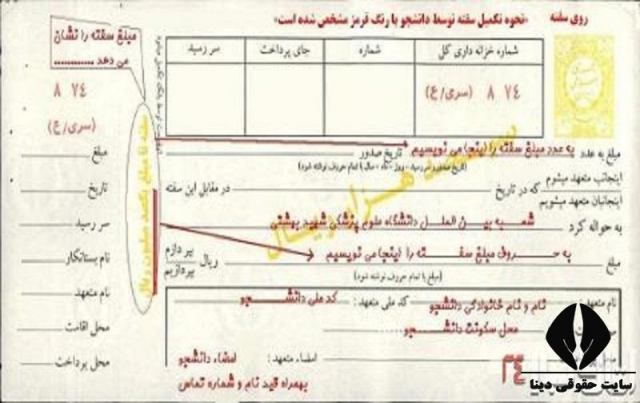 روی سفته
«نحوه تکمیل سفته توسط دانشجو با رنگ قرمز مشخص شده است»
شماره خزانه داری کل
شماره
جای پرداخت
سر رسید
۸ ۷۴
(سری/ع)
مبلغ به عدد
به عدد مبلغ سفته را اینجا می نویسیم
تاریخ صدور
(تاریخ صدور و سررسید - روز - ماه - سال با تمام حروف نوشته شود)
اینجانب متعهد میشوم
اینجانبان متعهد میشویم
که در تاریخ
در مقابل این سفته
به حواله کرد
شعبه بین الملل دانشگاه علوم پزشکی شهید بهشتی
مبلغ
به حروف مبلغ سفته را اینجا می نویسیم
ریال
بپردازم
بپردازیم
(مبلغ با تمام حروف نوشته شود)
نام متعهد:
نام و نام خانوادگی دانشجو
کد ملی متعهد:
کد ملی دانشجو
محل سکونت دانشجو
امضاء متعهد:
امضاء دانشجو
بهمراه قید نام و شماره تماس
مبلغ سفته را نشان
می دهد
۸ ۷۴
(سری/ع)
مبلغ
تاریخ
سر رسید
نام بستانکار
نام متعهد
محل اقامت
محل پرداخت
سفته تا مبلغ یکصد میلیون ریال
هزار ریال
۲۴
سایت حقوقی دینا